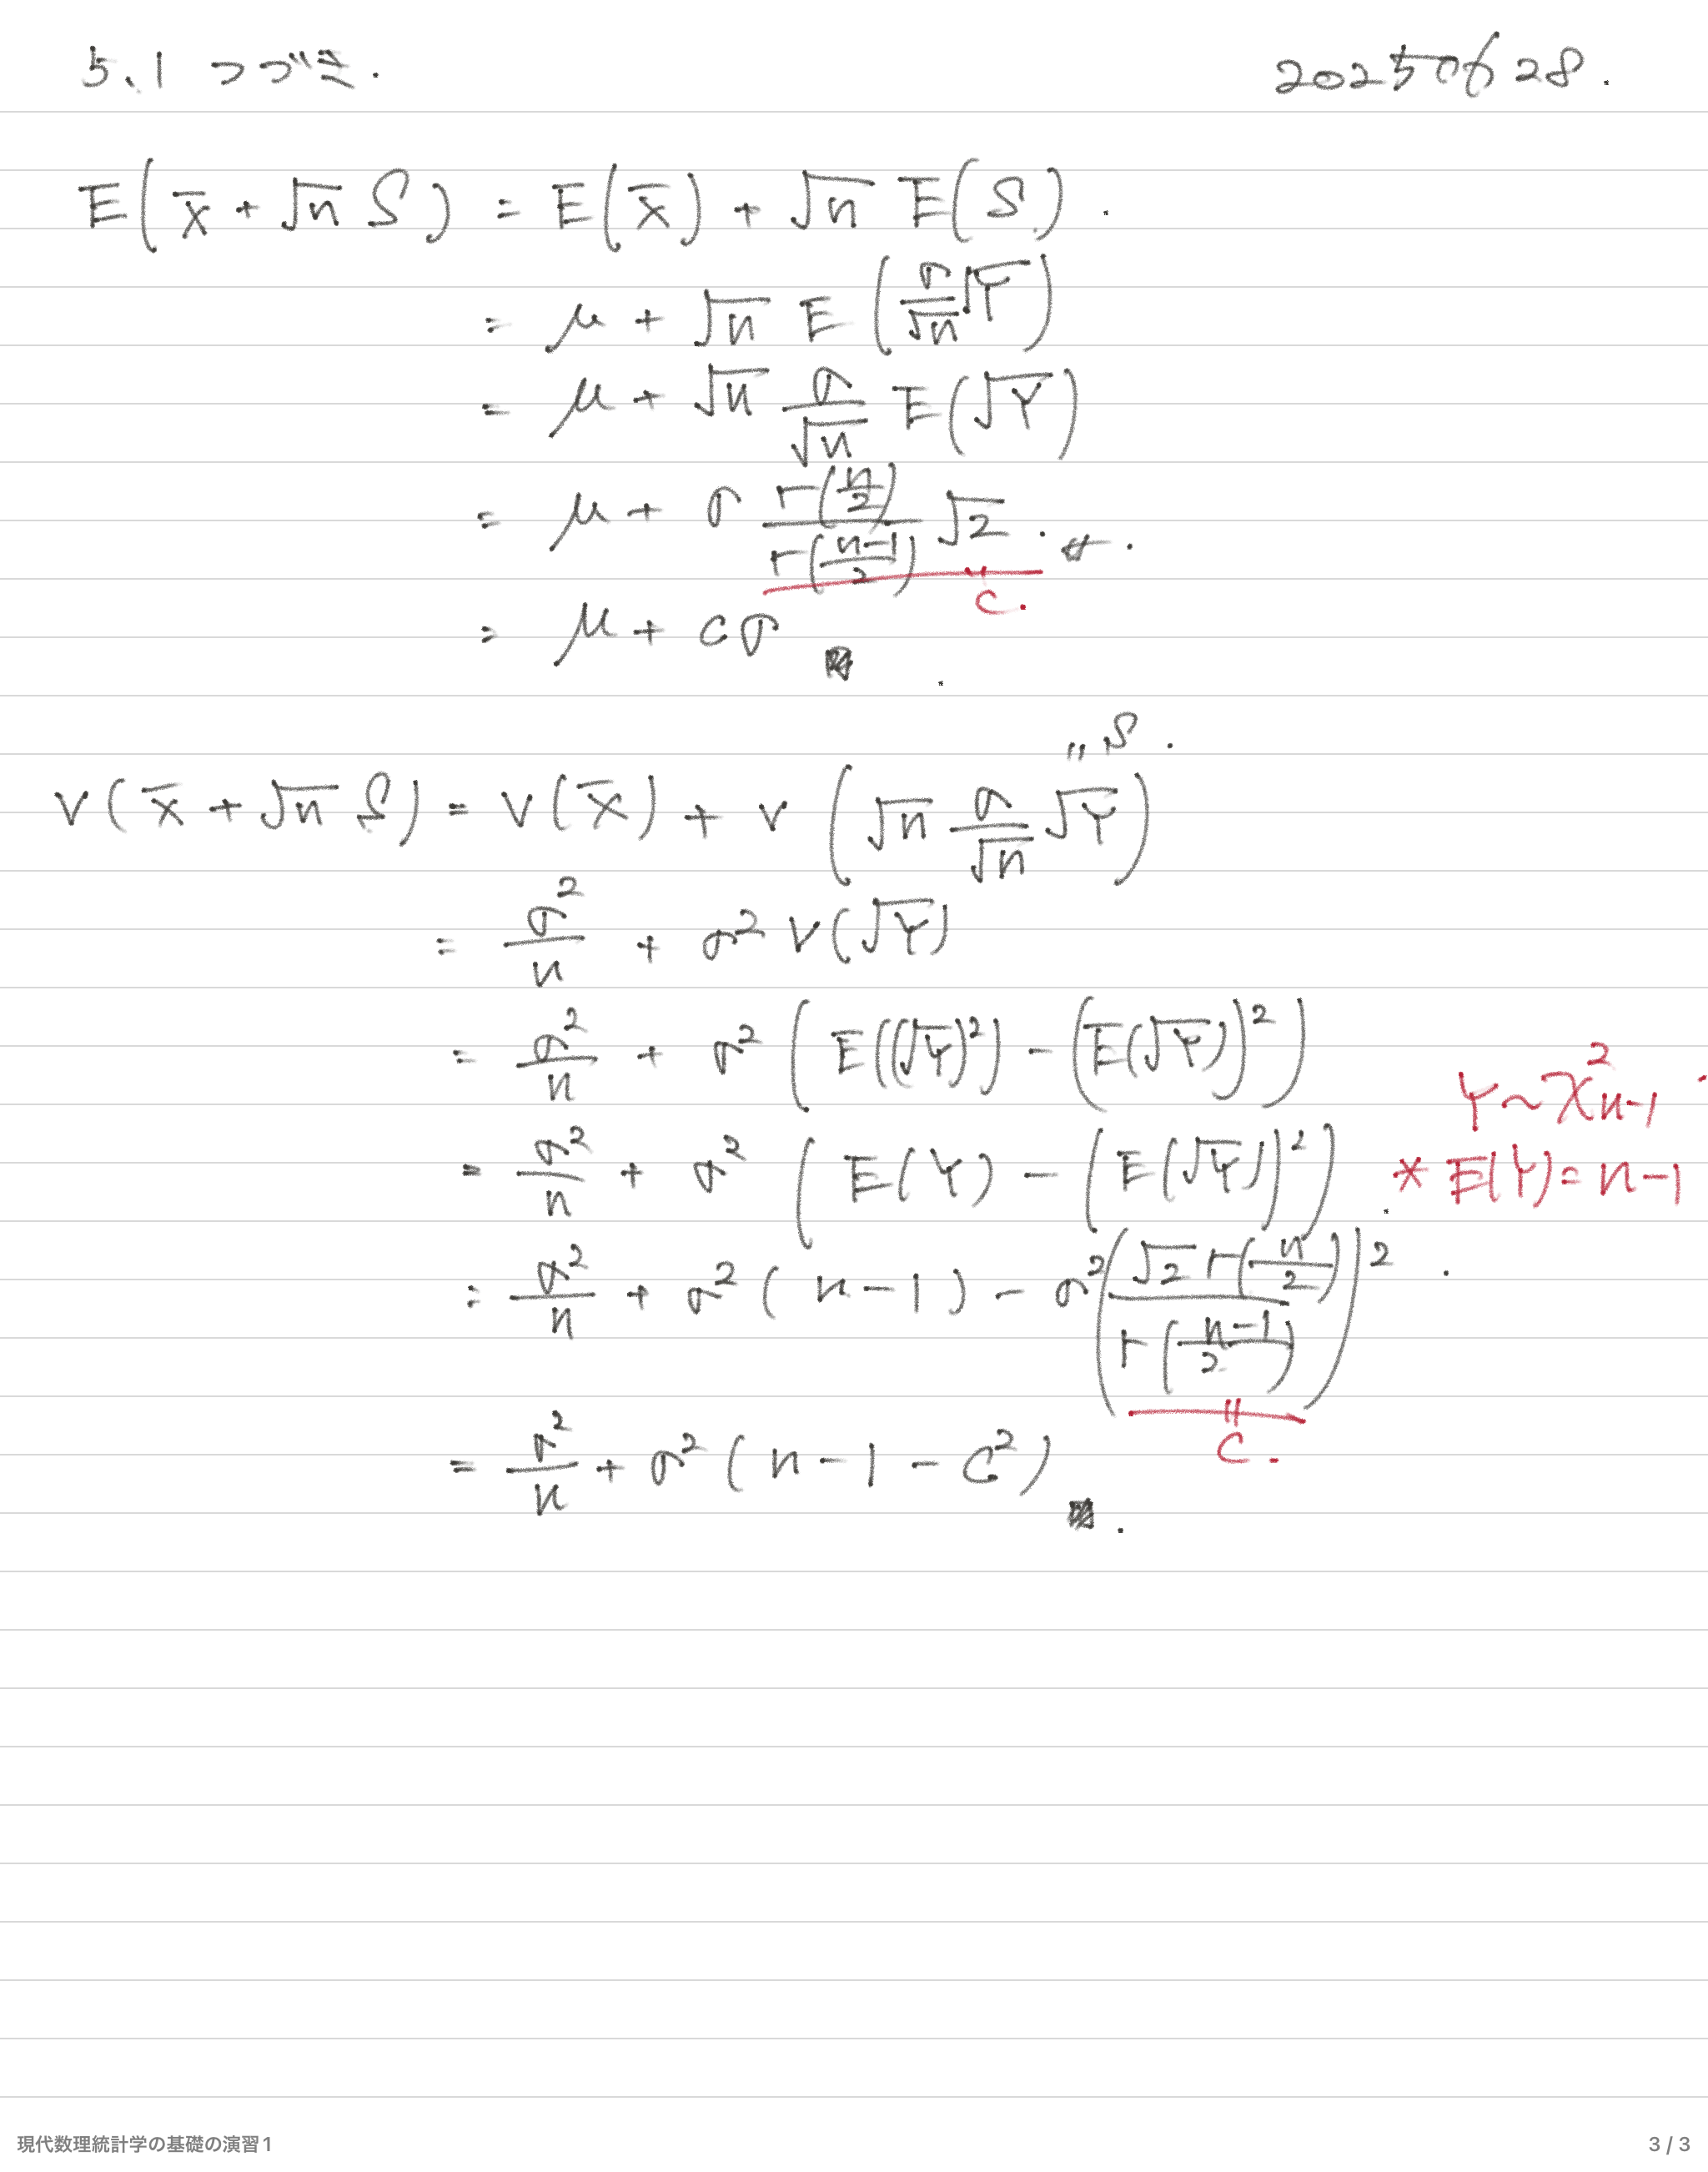 5.1 つづき. 20250628.
E(x̄ + √n S) = E(x̄) + √n E(S).
= μ + √n E(σ/√n √Y)
= μ + √n σ/√n E(√Y)
= μ + σ Γ(n/2)/Γ((n-1)/2) √2.
" c.
= μ + cσ
" S.
V(x̄ + √n S) = V(x̄) + V(√n σ/√n √Y)
= σ²/n + σ² V(√Y)
= σ²/n + σ² (E((√Y)²) - (E(√Y))²)
Y ~ χ²n-1
= σ²/n + σ² (E(Y) - (E(√Y))²) * E(Y) = n-1
= σ²/n + σ² (n-1) - σ² (√2 Γ(n/2)/Γ((n-1)/2))².
" c.
= σ²/n + σ² (n-1-c²)
現代数理統計学の基礎の演習1 3 / 3